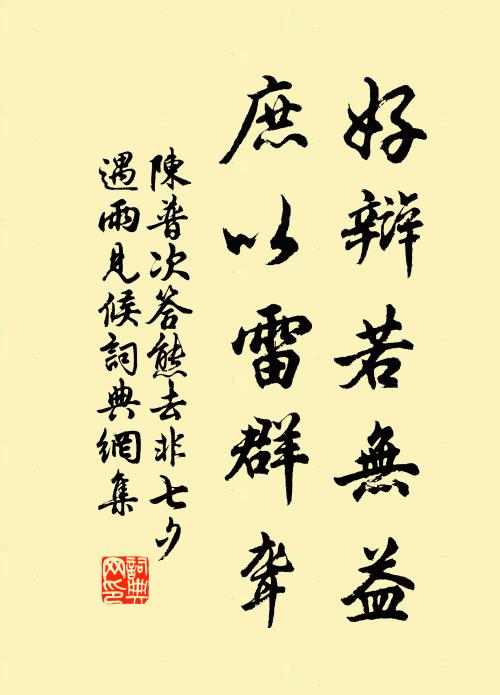 好辯若無益
庶以雷群聾
陳普次答熊去非七夕
遇雨見候詞典網集
詞典
网印